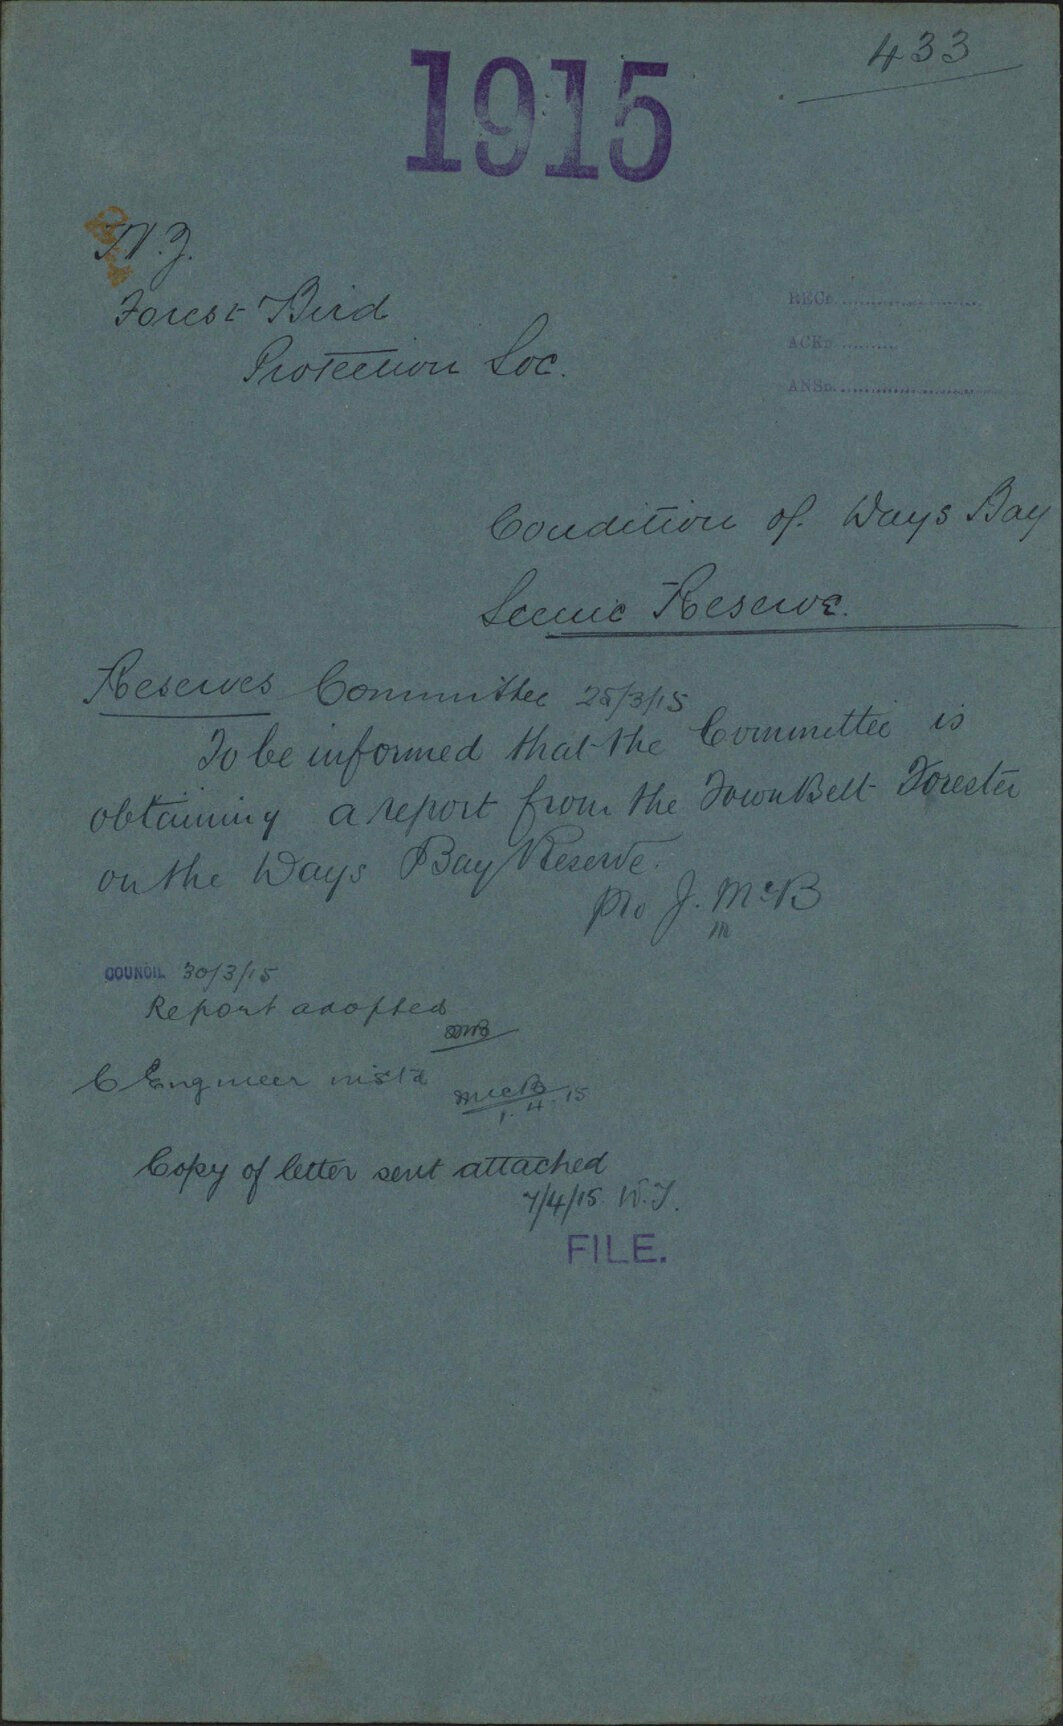 433
1915
N.Z.
Forest Bird
Protection Soc.
RECD.
ACKD.
ANSD.
Condition of Days Bay
Scenic Reserve.
Reserves Committee 25/3/15
To be informed that the Committee is
obtaining a report from the Town Belt Forester
on the Days Bay Reserve.
pro J. McB
m
COUNCIL 30/3/15
Report adopted
C Engineer inst'd
McB
1.4.15
Copy of letter sent attached
7/4/15. W.J.
FILE.